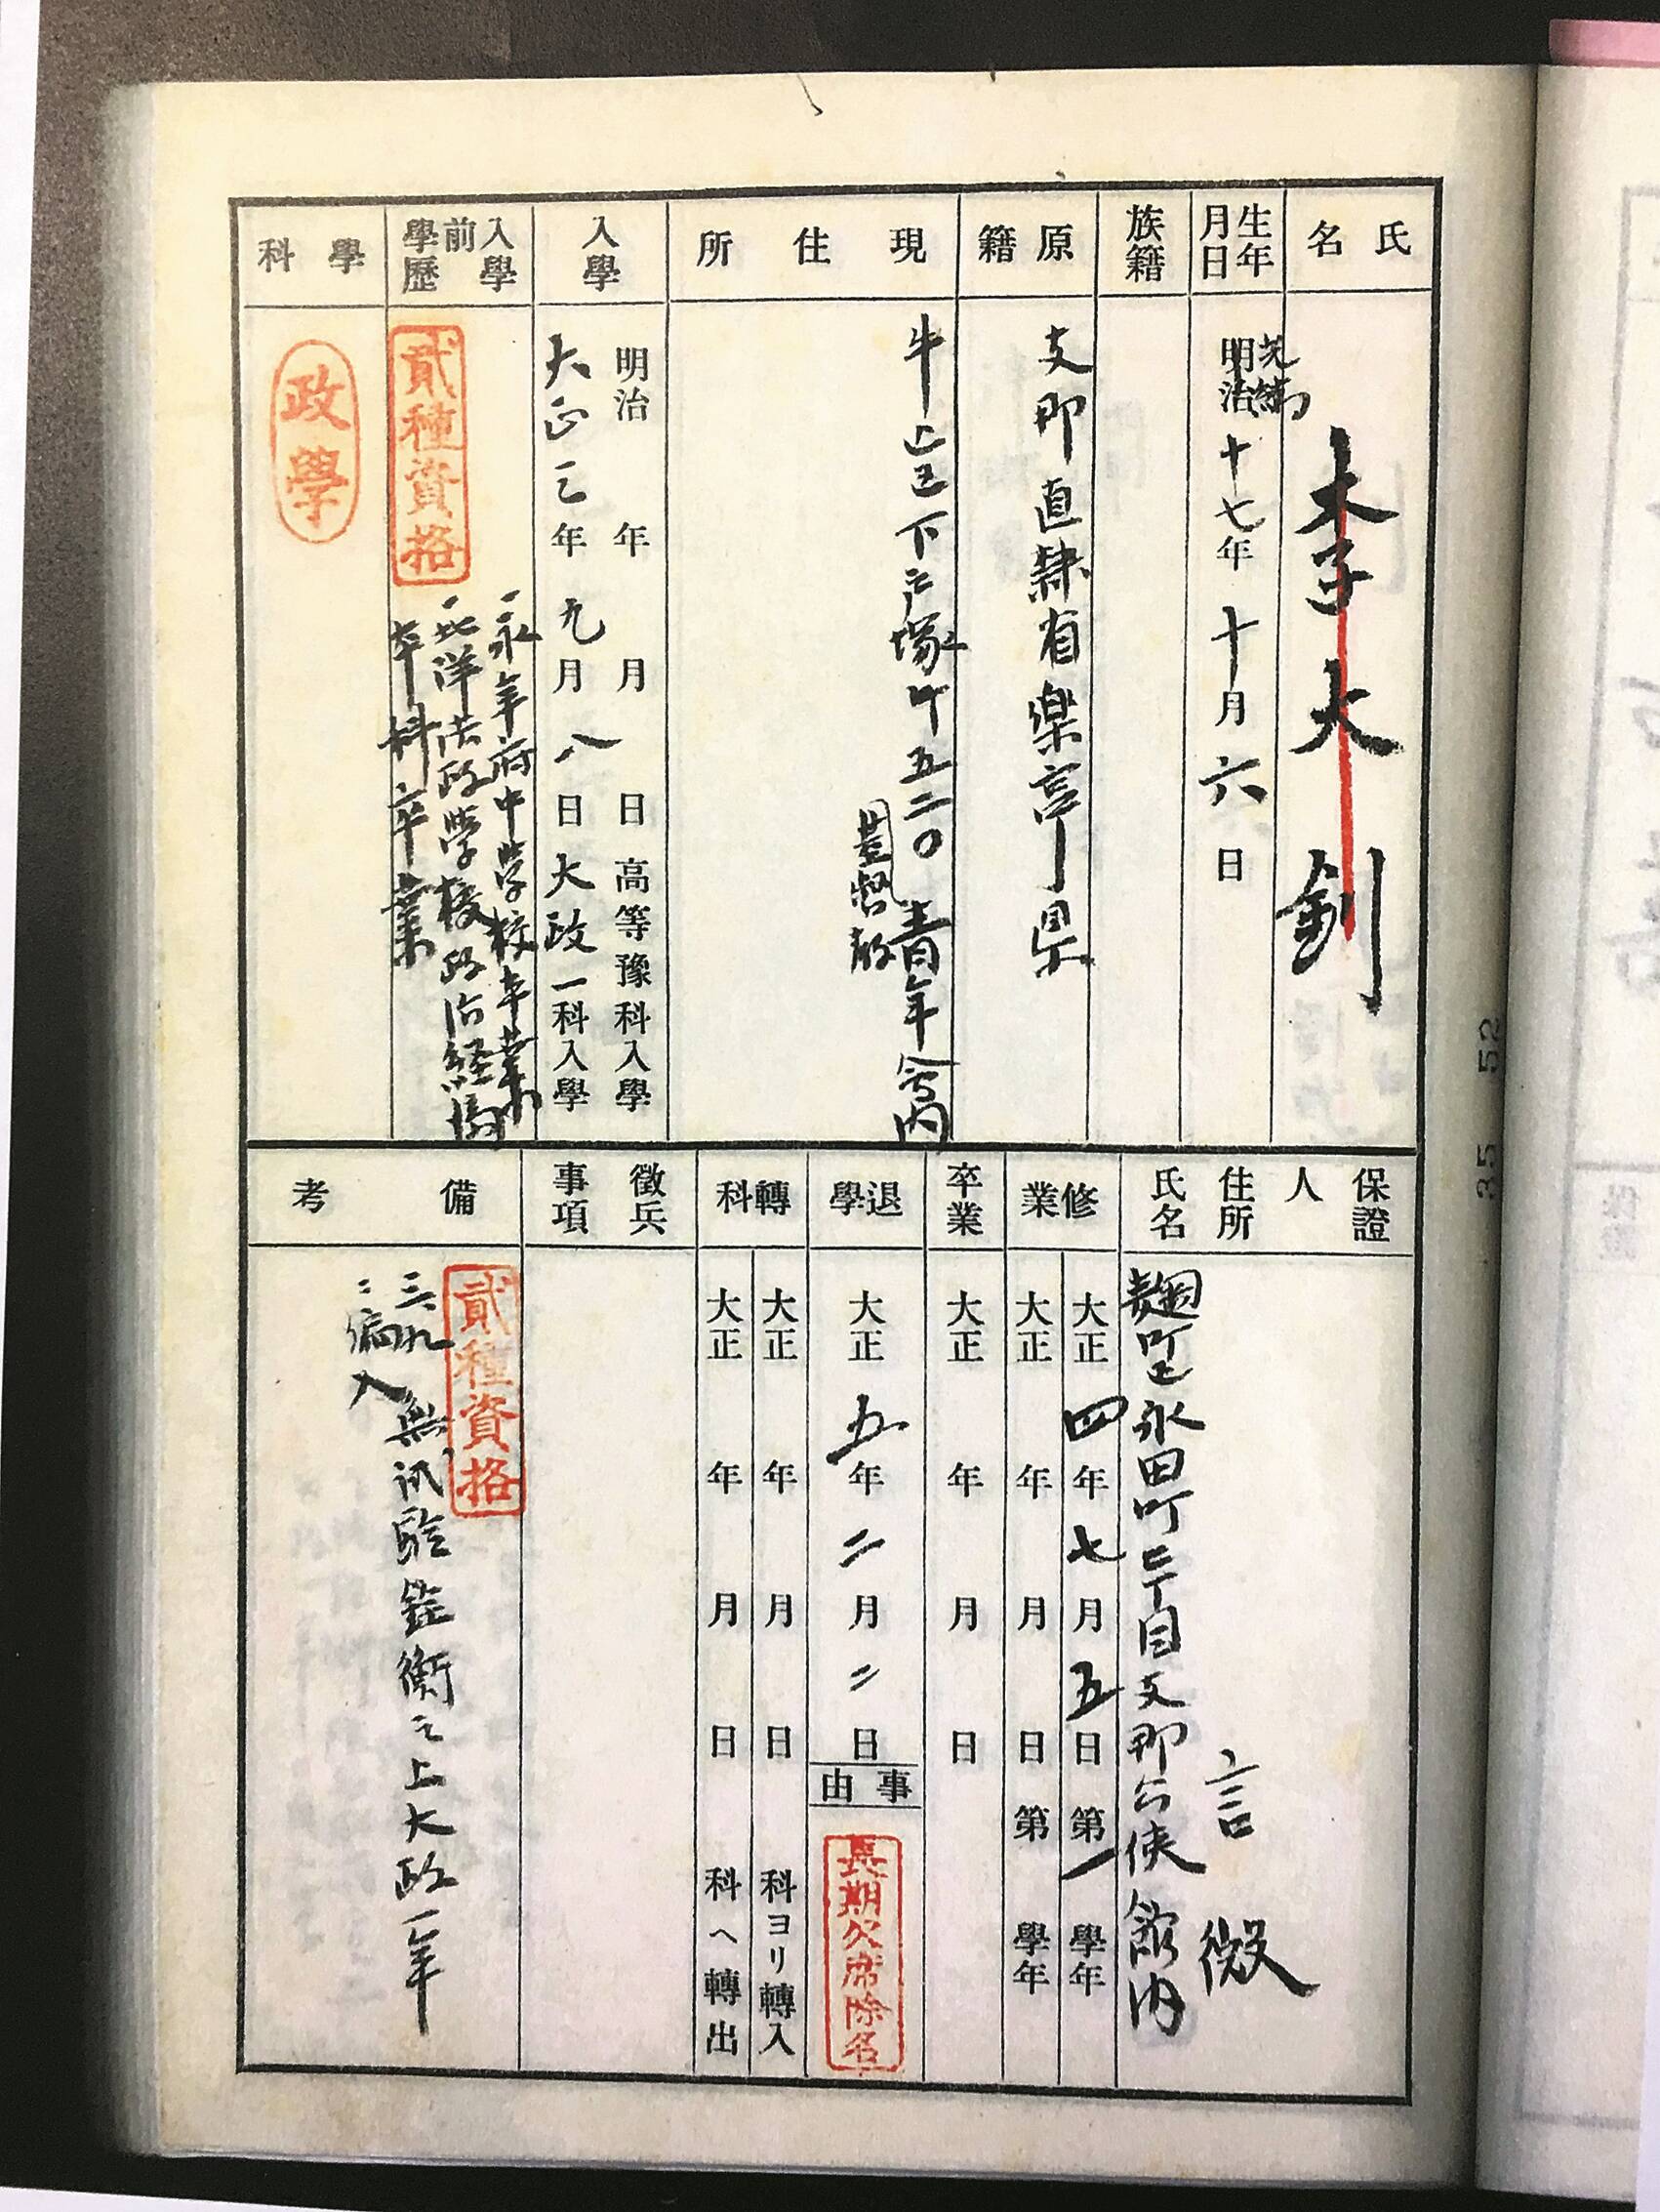 氏名
李大釗
生年月日
光緒
明治十七年十月六日
族籍
原籍
支那直隷省楽亭県
現住所
牛込区下戸塚町五二〇
基督教青年会内
入學
明治 年 月 日高等豫科入學
大正三年九月八日大政一科入學
入學前學歷
貳種資格
一、永年府中学校卒業
一、北洋法政学校政治経済
本科卒業
學科
政學
保證人住所氏名
言微
麹町区永田町二丁目支那公使館内
修業
大正四年七月五日第一學年
大正 年 月 日第 學年
卒業
大正 年 月 日
退學
大正五年二月二日
事由
長期欠席除名
轉科
大正 年 月 日 科ヨリ轉入
大正 年 月 日 科ヘ轉出
徵兵事項
備考
貳種資格
三、九、無試験銓衡之上大政一年
ニ編入
35 52